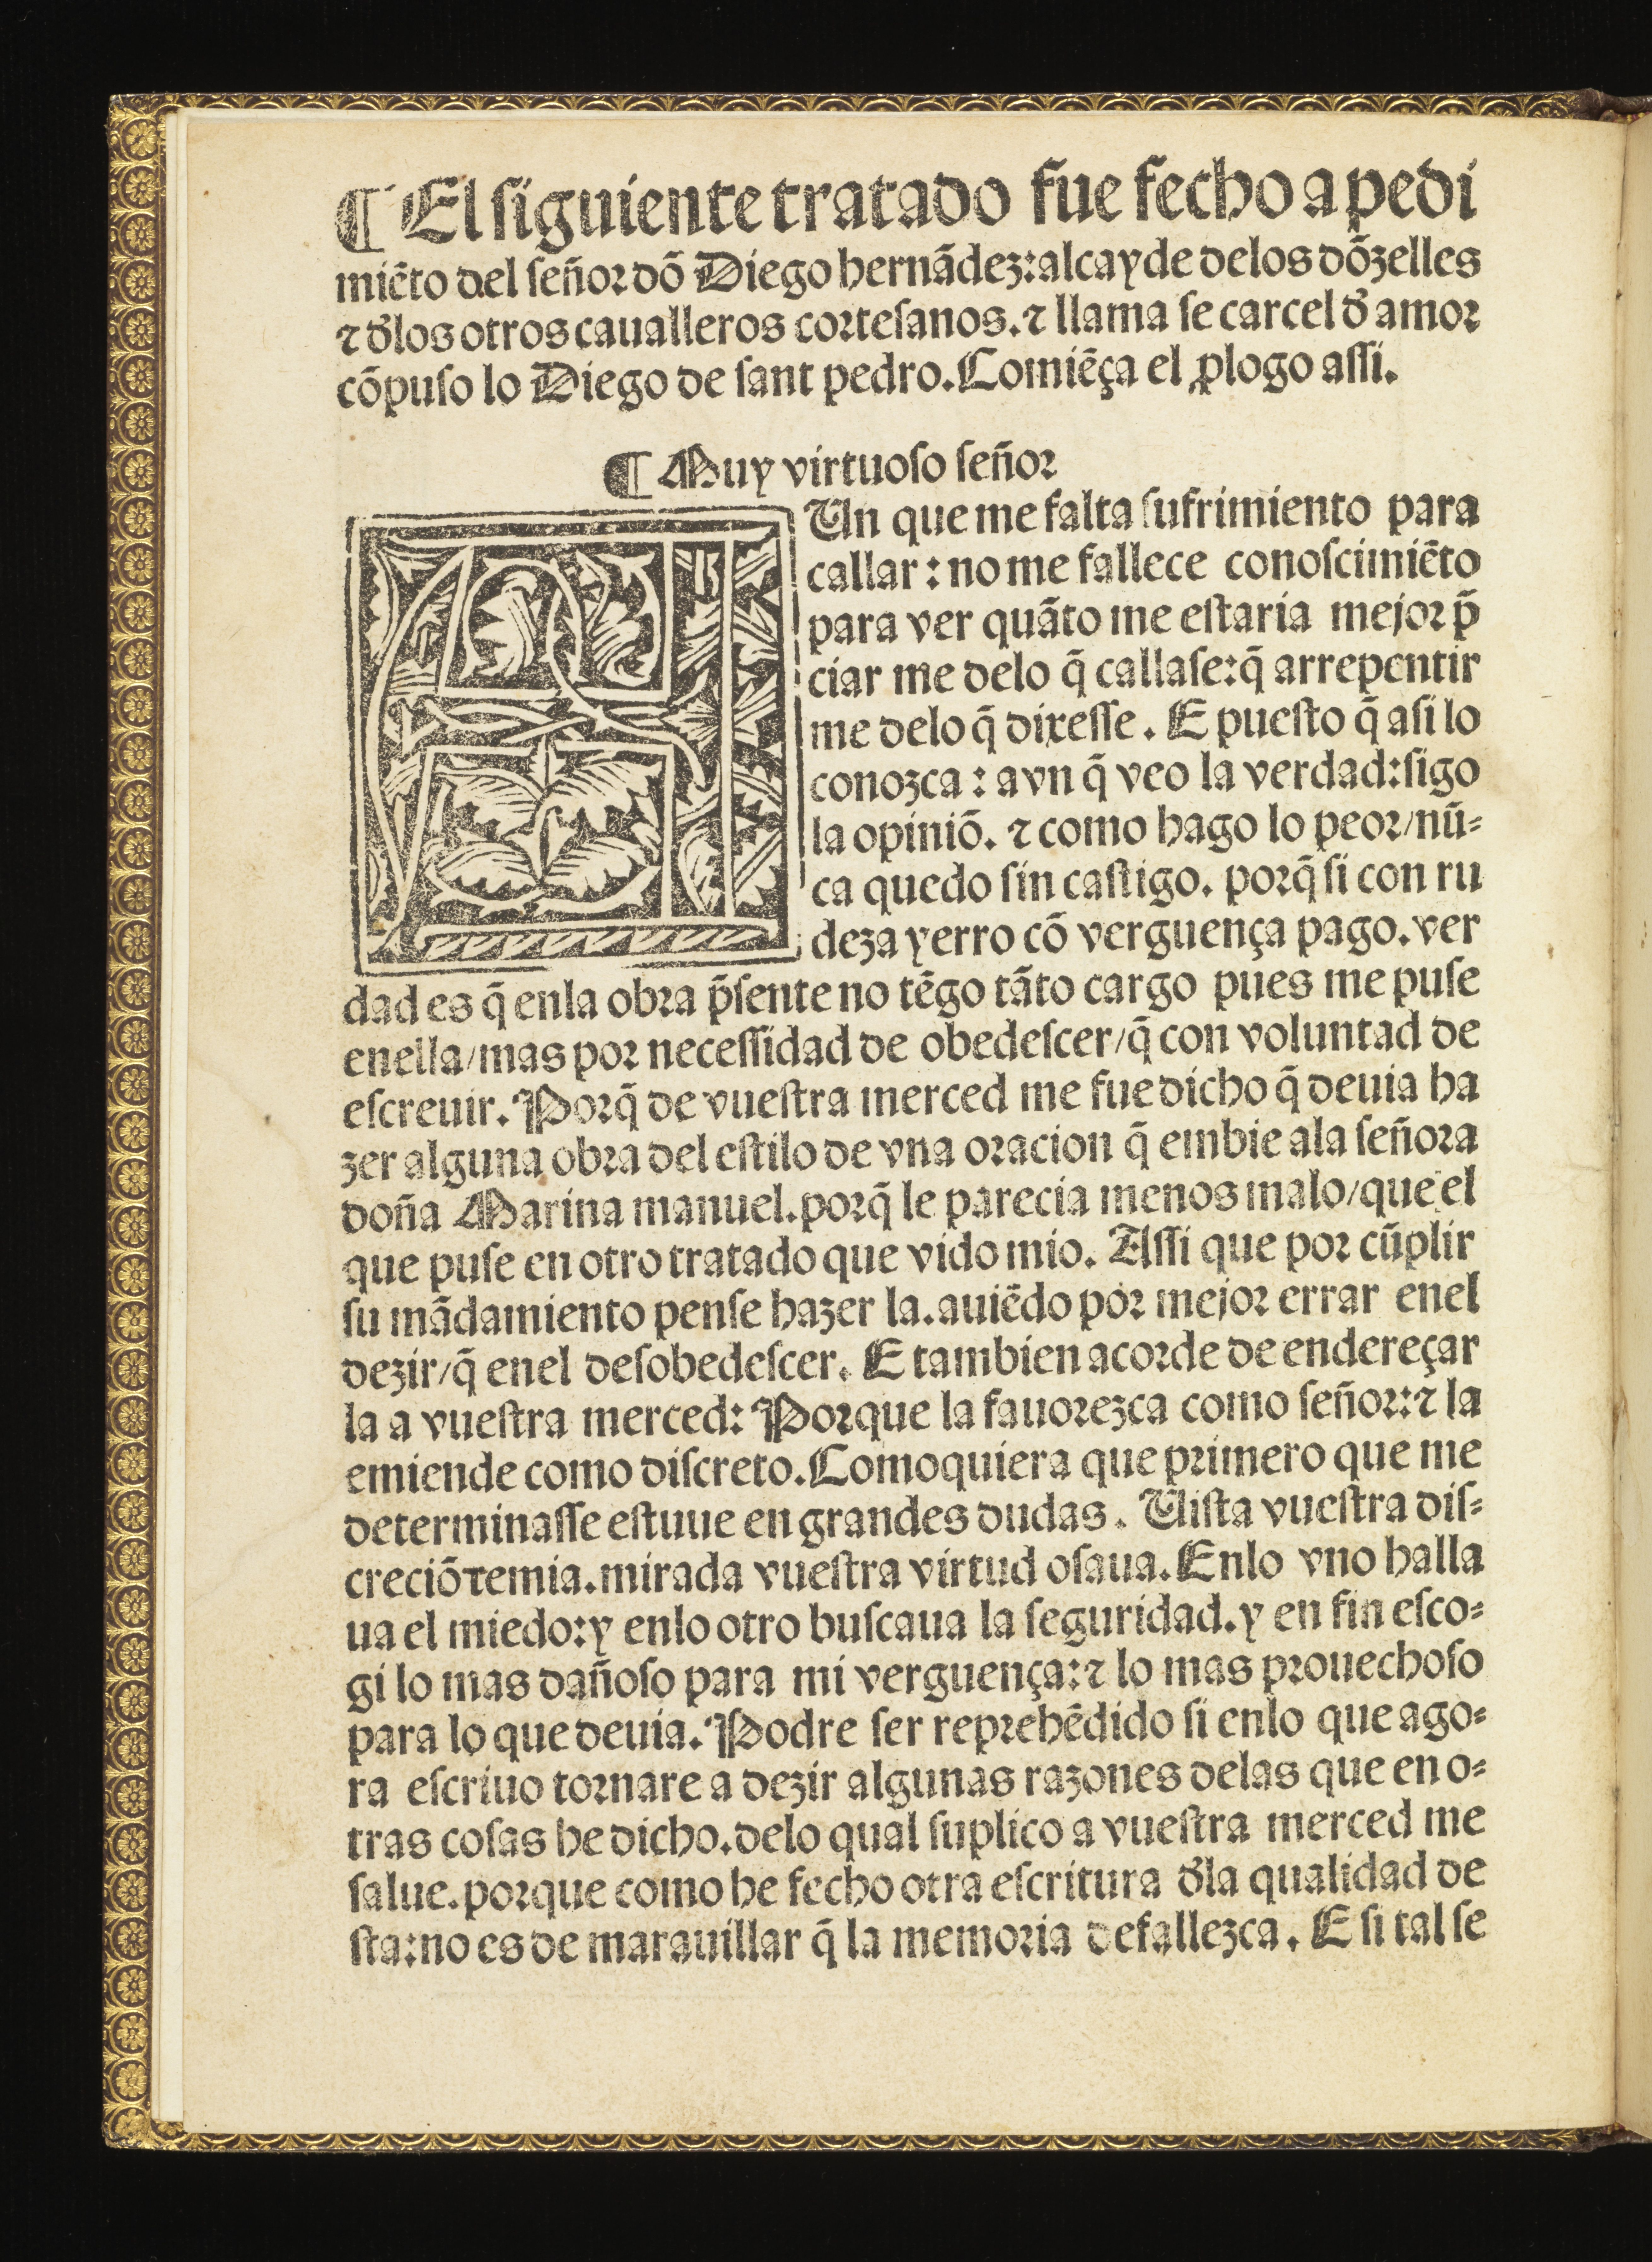 ¶ El siguiente tratado fue fecho a pedi
miẽto del señor dõ Diego hernãdez: alcayde delos dõzelles
⁊ đlos otros caualleros cortesanos. ⁊ llama se carcel đ amor
cõpuso lo Diego de sant pedro. Comiẽça el ꝓlogo assi.
¶ Muy virtuoso señor
AUn que me falta sufrimiento para
callar: no me fallece conoscimiẽto
para ver quãto me estaria mejor p̃
ciar me delo q̃ callase: q̃ arrepentir
me delo q̃ dixesse. E puesto q̃ asi lo
conozca: avn q̃ veo la verdad: sigo
la opiniõ. ⁊ como hago lo peor/nũ-
ca quedo sin castigo. porq̃ si con ru
deza yerro cõ verguença pago. ver
dad es q̃ enla obra p̃sente no tẽgo tãto cargo pues me puse
enella/mas por necessidad de obedescer/q̃ con voluntad de
escreuir. Porq̃ de vuestra merced me fue dicho q̃ deuia ha
zer alguna obra del estilo de vna oracion q̃ embie ala señora
doña Marina manuel. porq̃ le parecia menos malo/que el
que puse en otro tratado que vido mio. Assi que por cũplir
su mãdamiento pense hazer la. auiẽdo por mejor errar enel
dezir/q̃ enel desobedescer. E tambien acorde de endereçar
la a vuestra merced: Porque la fauorezca como señor: ⁊ la
emiende como discreto. Comoquiera que primero que me
determinasse estuue en grandes dudas. Uista vuestra dis-
creciõ temia. mirada vuestra virtud osaua. Enlo vno halla
ua el miedo: y enlo otro buscaua la seguridad. y en fin esco-
gi lo mas dañoso para mi verguença: ⁊ lo mas prouechoso
para lo que deuia. Podre ser reprehẽdido si enlo que ago-
ra escriuo tornare a dezir algunas razones delas que en o-
tras cosas he dicho. delo qual suplico a vuestra merced me
salue. porque como he fecho otra escritura đla qualidad de
sta: no es de marauillar q̃ la memoria defallezca. E si tal se